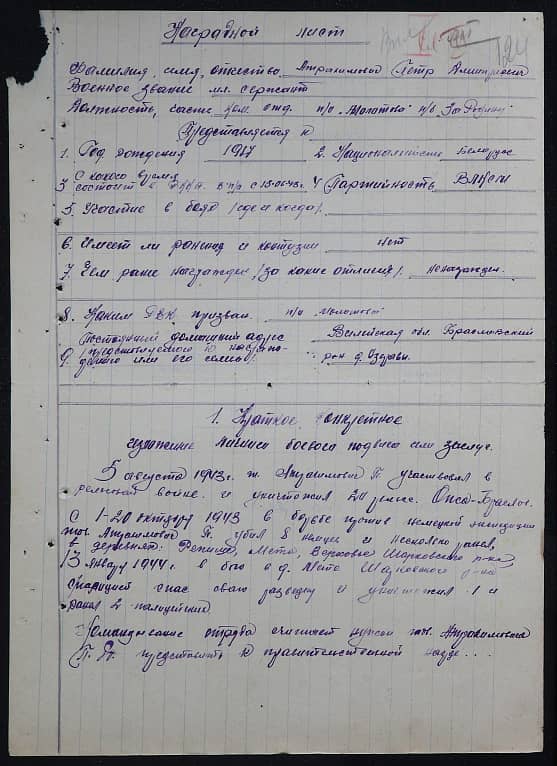 Наградной лист
124
Фамилия, имя, отчество Апрасимович Петр Дмитриевич
Военное звание мл. сержант
Должность, часть ком. отд. п/о "Молотова" п/б "За Родину"
Представляется к
1. Год рождения 1917 2. Национальность Беларус
С какого время
3 состоит в п/о с 15-06-43 г. 4 Партийность ВЛКСМ
5. Участие в боях (где и когда).
6. Имеет ли ранения и контузии нет
7. Чем ране награжден (за какие отличия). ненагражден.
8. Каким РВК призван. п/о Молотова
Постоянный домашний адрес Вилейская обл. Браславский
9. представляемого к награж- рон д.
дению или его семьи.
1. Краткое, конкретное
изложение личного боевого подвига или заслуг.
5 августа 1943 г. т. Апрасимович П. участвовал в
рельсовой войне и уничтожил 20 рельс. Опса-Браслов.
С 1-20 октября 1943 в борьбе против немецкой экспедиции
тов. Апрасимович П. убил 8 немцев и несколко ранил,
в деревнях: Мето, Шарковского р-на
13 январ 1944 г. в бою в д. Мето Шарковского р-на
спас свою разведку и уничтожил 1 и
ранил 2 полицейских
Командование отряда считает нужным тов. Апрасимовича
П. Д. представить к правительственной награде...